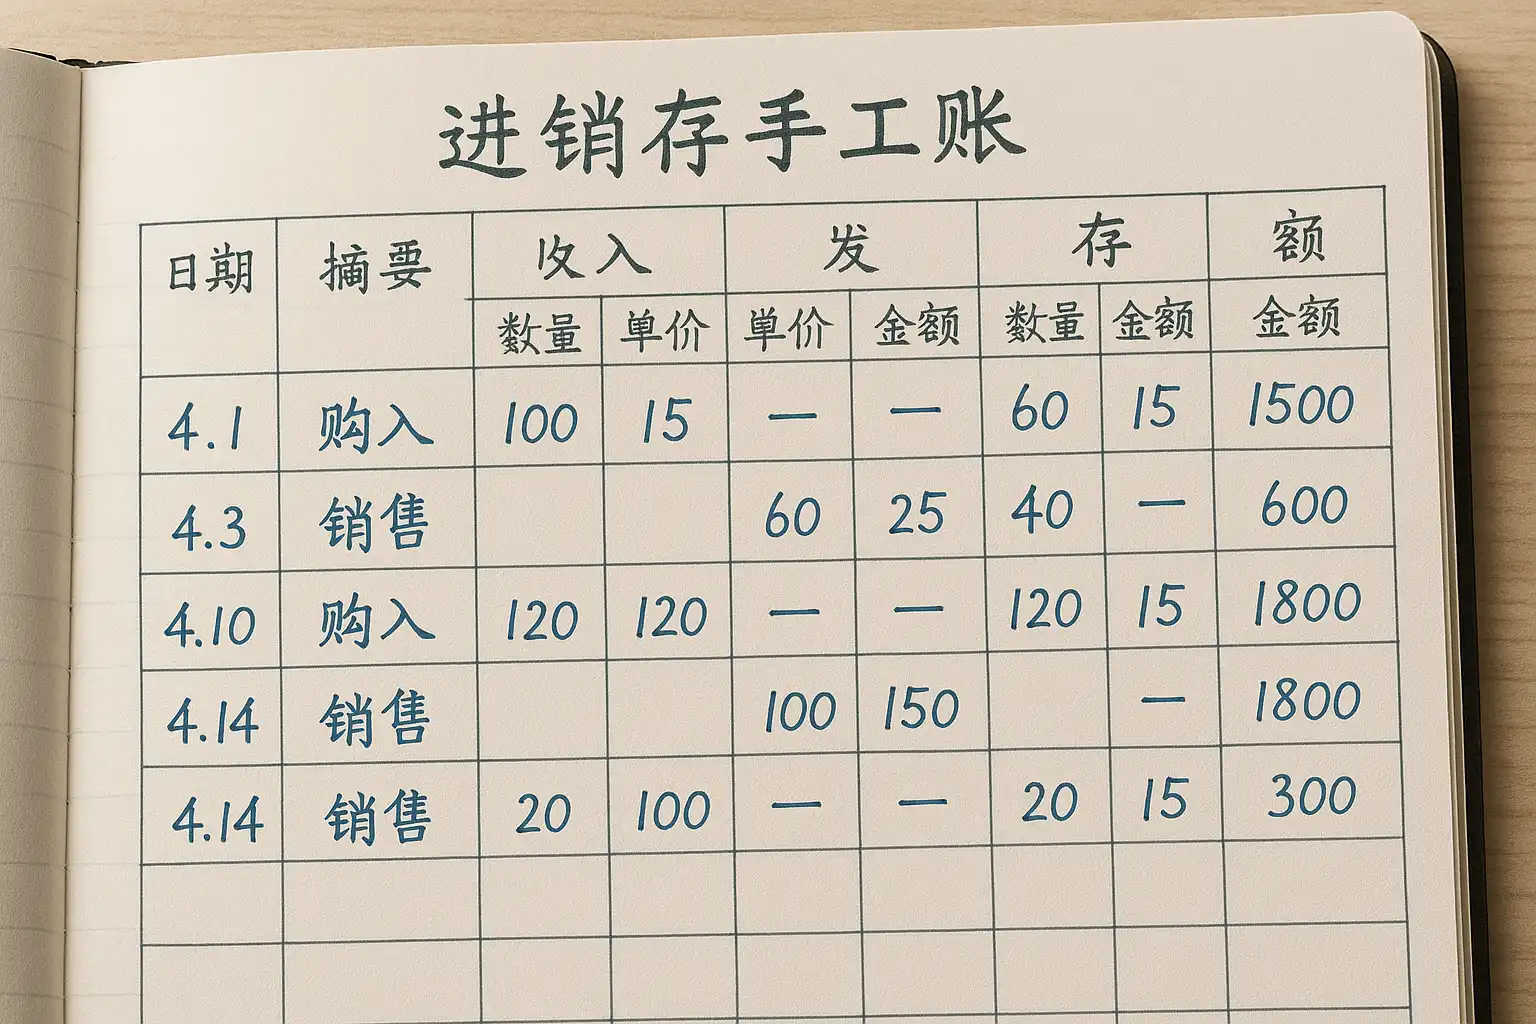 进销存手工账
日期 摘要 收入 发 存 额
数量 单价 单价 金额 数量 金额 金额
4.1 购入 100 15 — — 60 15 1500
4.3 销售 60 25 40 — 600
4.10 购入 120 120 — — 120 15 1800
4.14 销售 100 150 — 1800
4.14 销售 20 100 — — 20 15 300